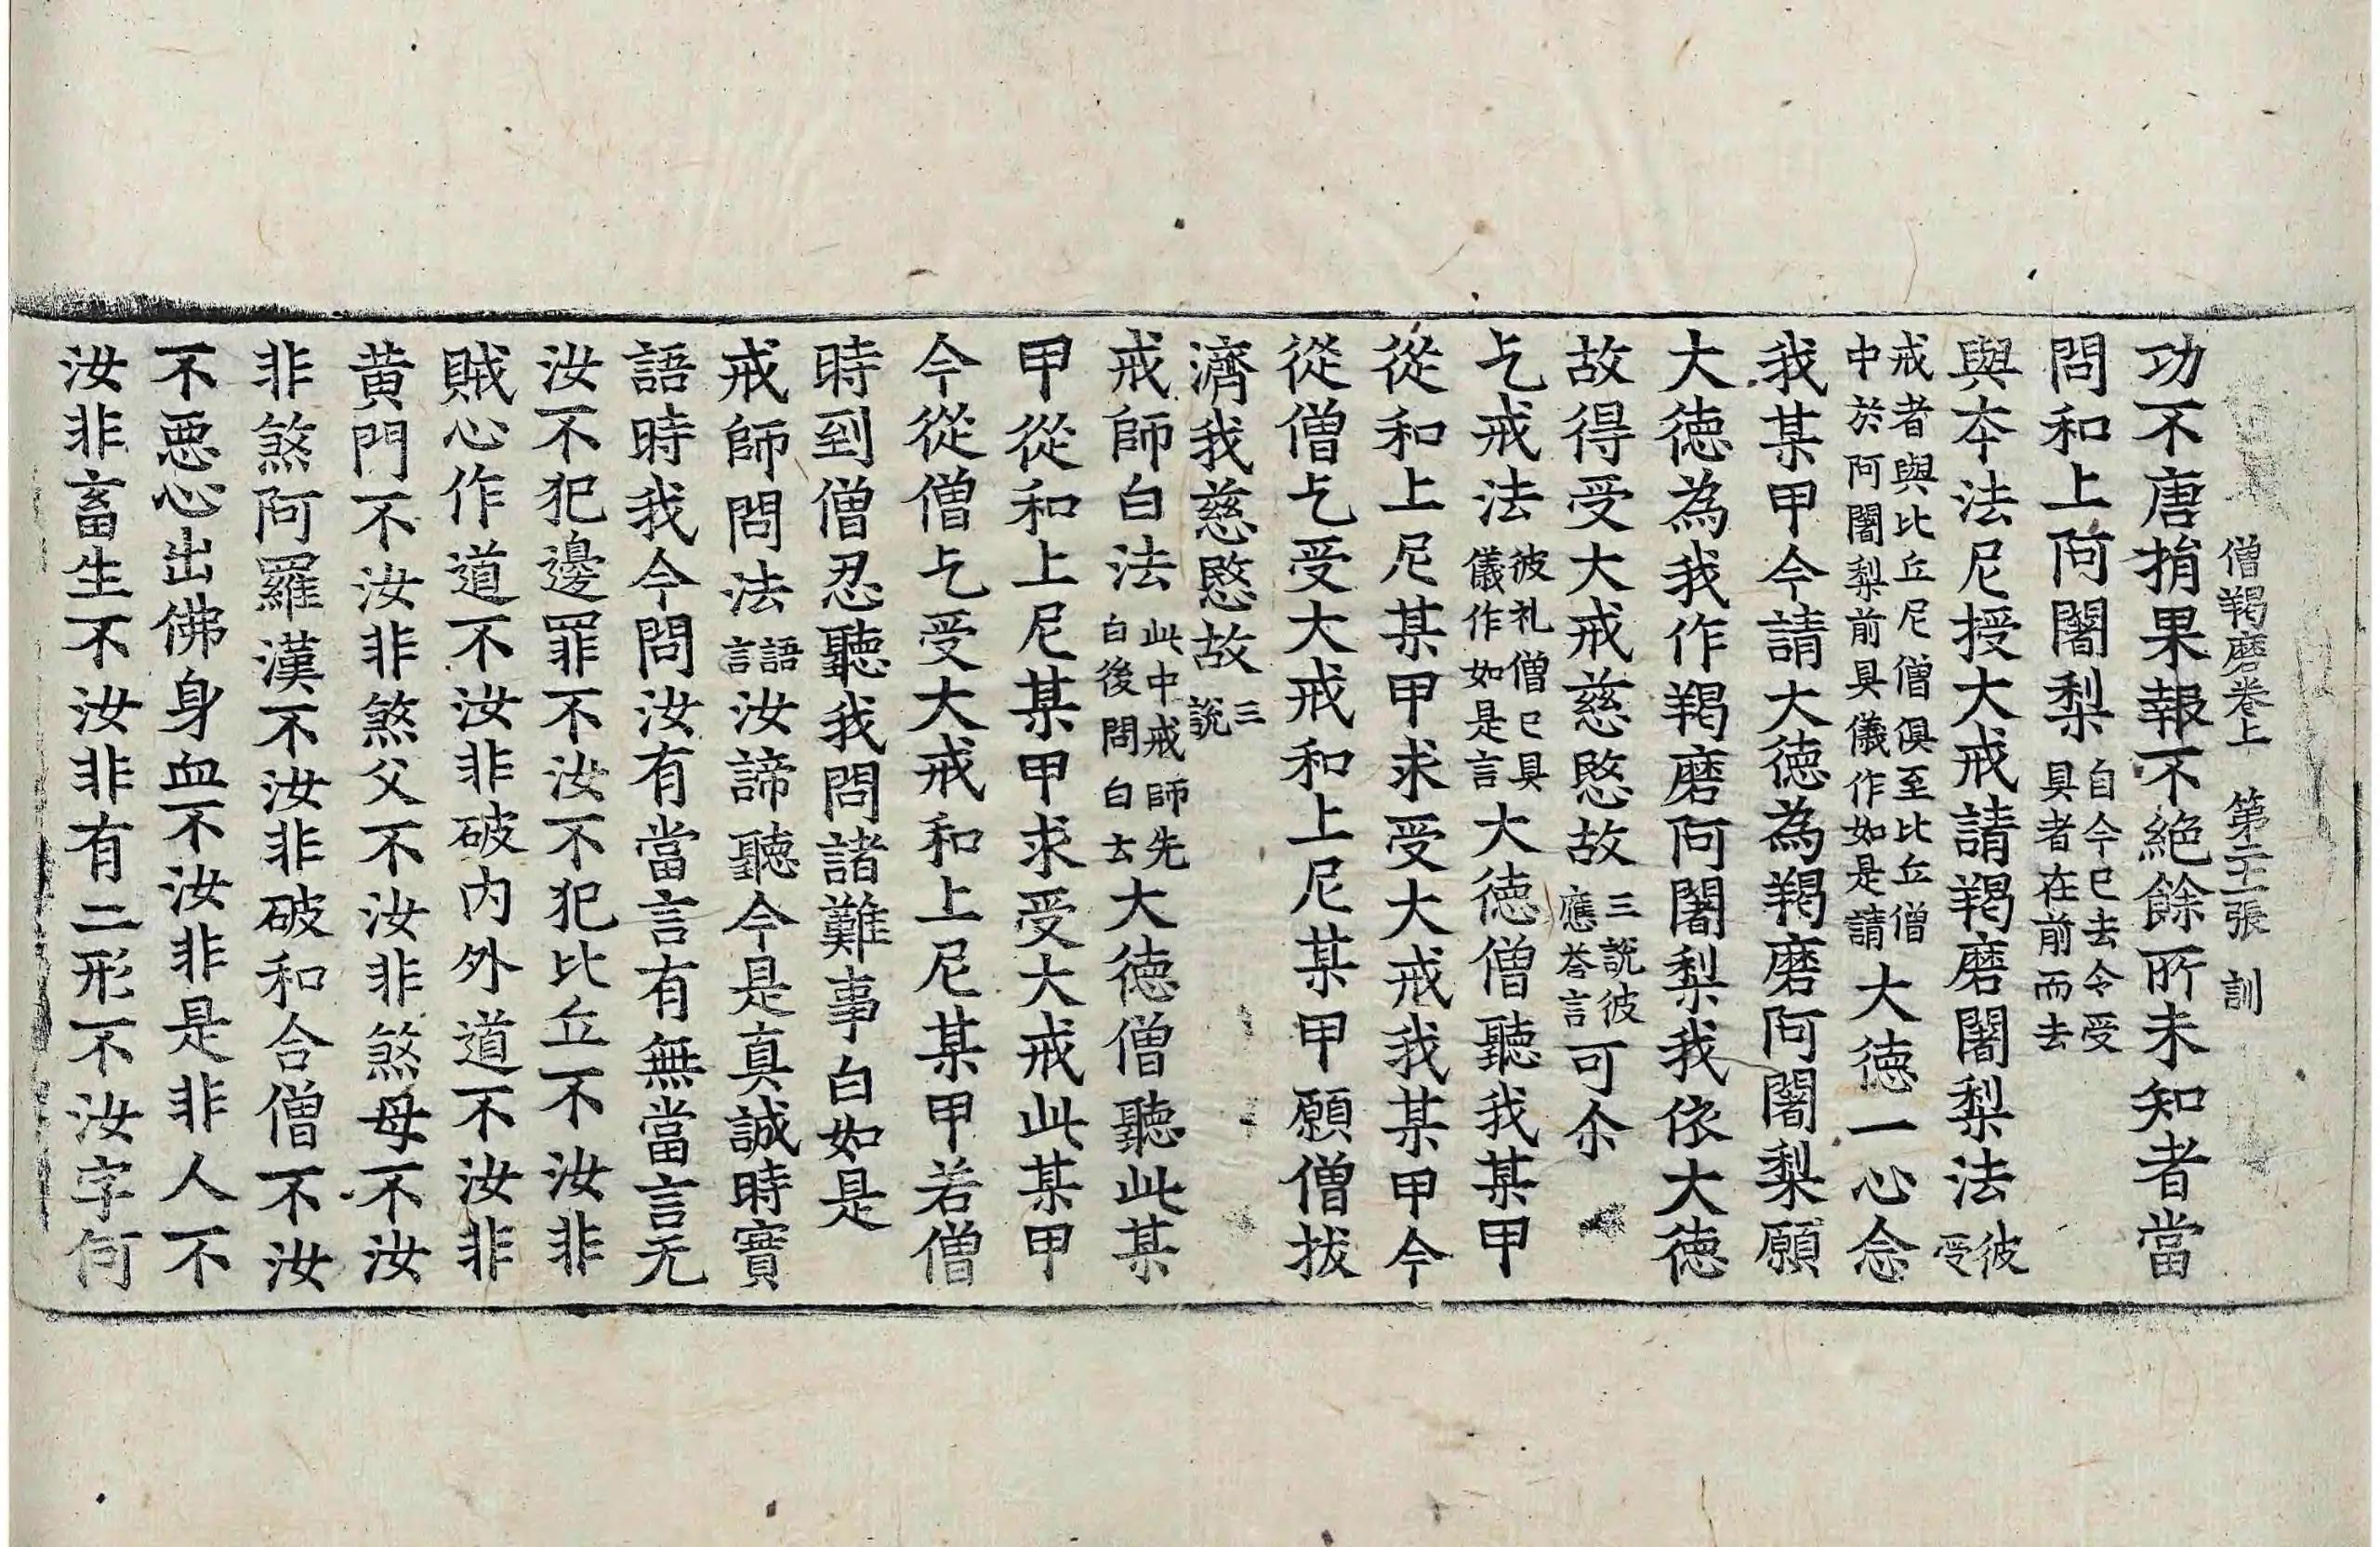 僧羯磨卷上　第二十二張　訓
功不唐捐果報不絕餘所未知者當
問和上阿闍梨自今已去令受具者在前而去
與夲法尼授大戒請羯磨闍梨法彼受
戒者與比丘尼僧俱至比丘僧中於阿闍梨前具儀作如是請大德一心念
我某甲今請大德為羯磨阿闍梨願
大德為我作羯磨阿闍梨我依大德
故得受大戒慈愍故三說彼應荅言可尒
乞戒法彼礼僧已具儀作如是言大德僧聽我某甲
從和上尼某甲求受大戒我某甲今
從僧乞受大戒和上尼某甲願僧拔
濟我慈愍故三說
戒師白法此中戒師先白後問白言大德僧聽此某
甲從和上尼某甲求受大戒此某甲
今從僧乞受大戒和上尼某甲若僧
時到僧忍聽我問諸難事白如是
戒師問法語言汝諦聽今是真誠時實
語時我今問汝有當言有無當言无
汝不犯邊罪不汝不犯比丘不汝非
賊心作道不汝非破內外道不汝非
黃門不汝非煞父不汝非煞母不汝
非煞阿羅漢不汝非破和合僧不汝
不惡心出佛身血不汝非是非人不
汝非畜生不汝非有二形不汝字何